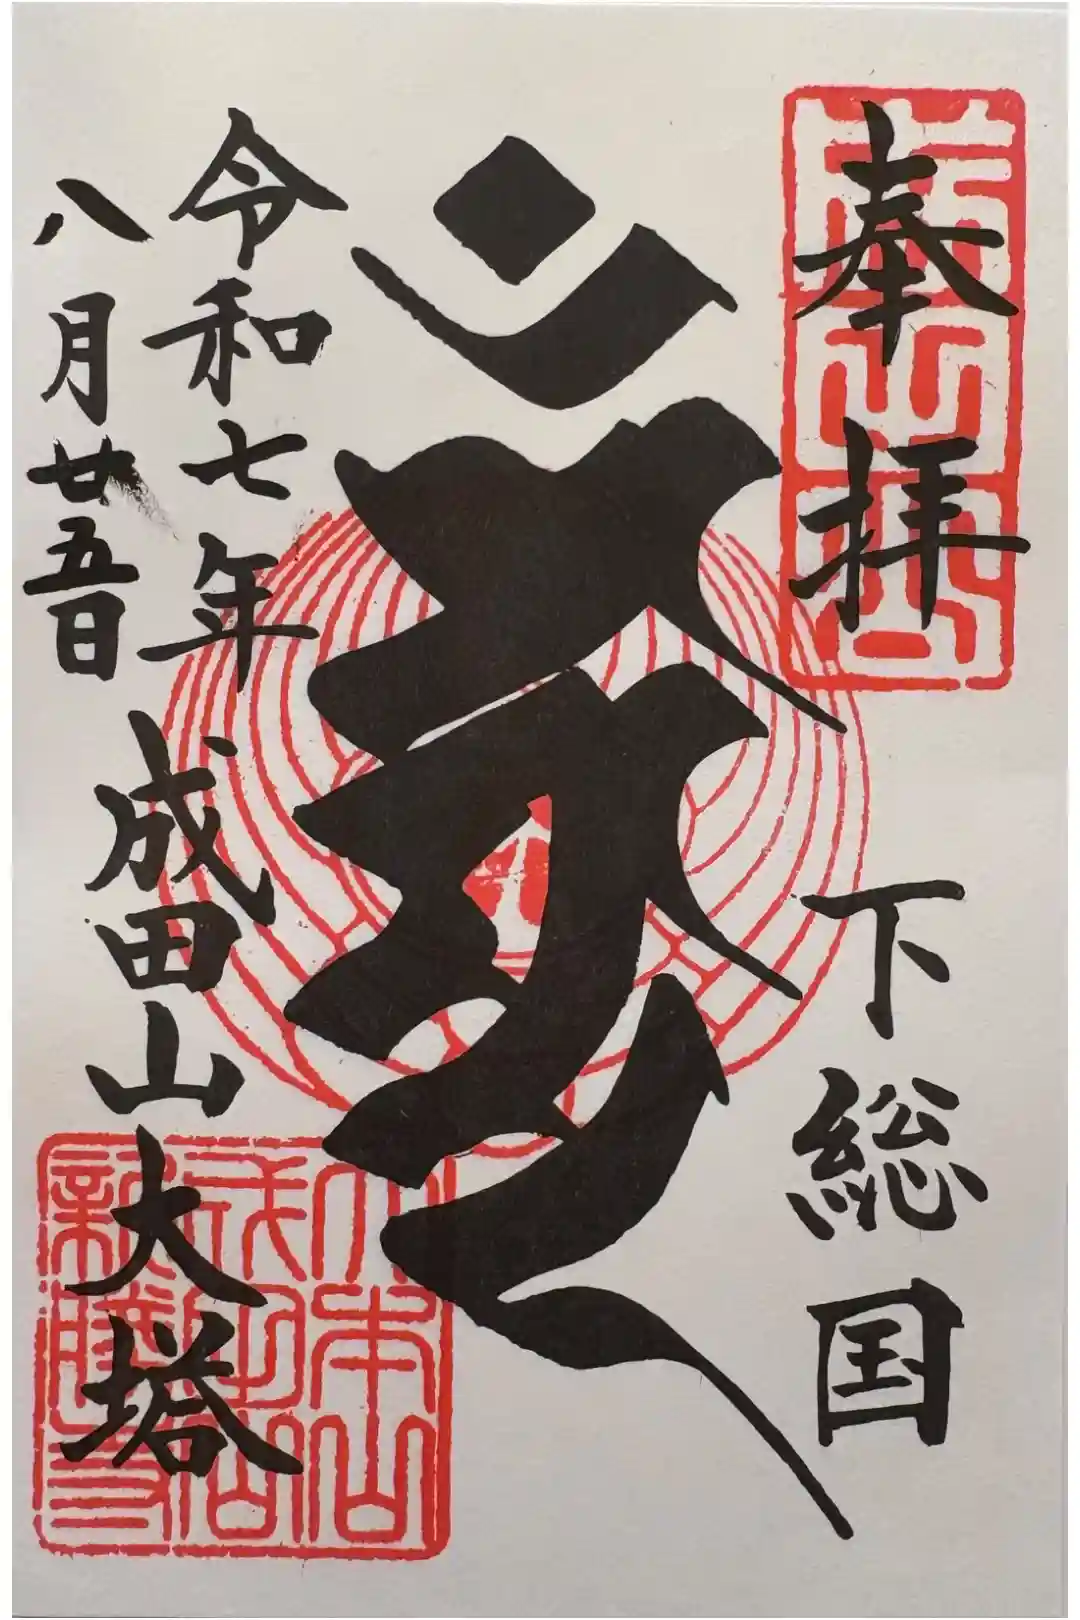 奉拝
下総国
令和七年
八月廿五日
成田山大塔
大本山
成田山
新勝寺